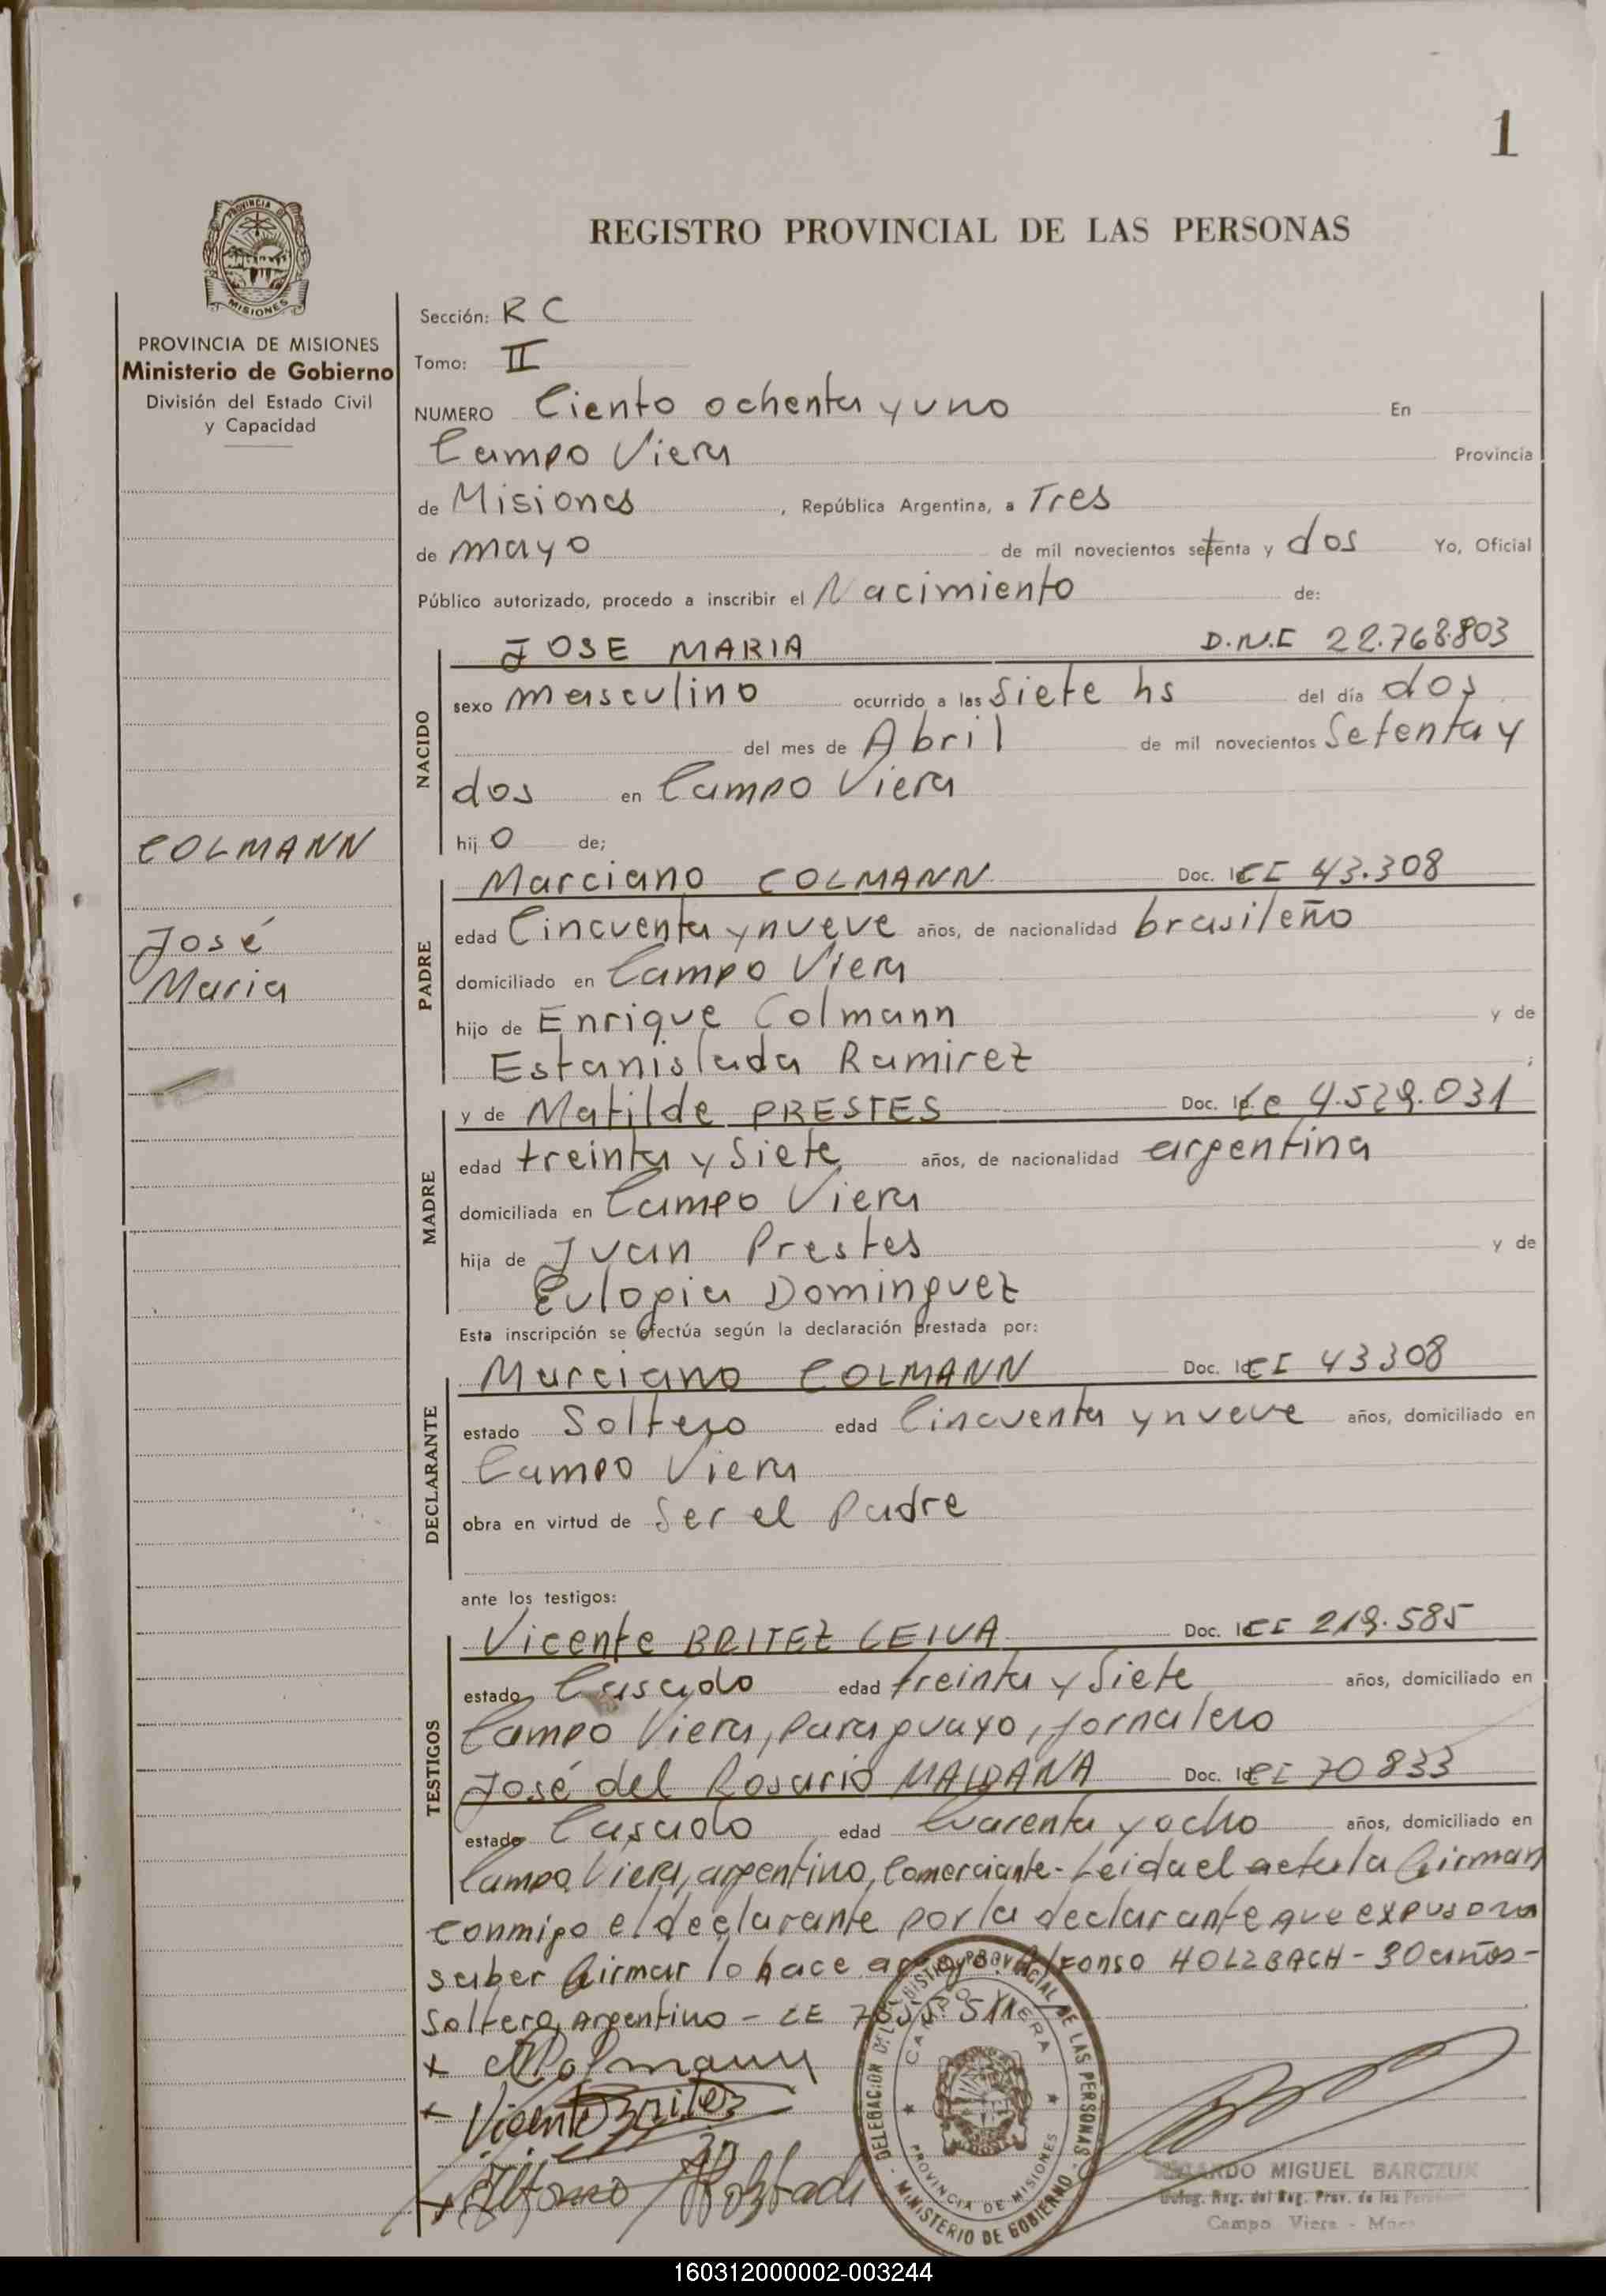 1
PROVINCIA DE
MISIONES
REGISTRO PROVINCIAL DE LAS PERSONAS
PROVINCIA DE MISIONES
Ministerio de Gobierno
División del Estado Civil
y Capacidad
COLMANN
José
Maria
Sección: R C
Tomo: II
NUMERO Ciento ochenta y uno En
Campo Viera Provincia
de Misiones, República Argentina, a Tres
de mayo de mil novecientos setenta y dos Yo, Oficial
Público autorizado, procedo a inscribir el Nacimiento de:
NACIDO
JOSE MARIA D.N.I 22.768.803
sexo masculino ocurrido a las Siete hs del día dos
del mes de Abril de mil novecientos Setenta y
dos en Campo Viera
hijo de;
PADRE
Marciano COLMANN Doc. Id CI 43.308
edad Cincuenta y nueve años, de nacionalidad brasileño
domiciliado en Campo Viera
hijo de Enrique Colmann y de
Estanislada Ramirez ;
MADRE
y de Matilde PRESTES Doc. Id 4.529.031
edad treinta y Siete años, de nacionalidad argentina
domiciliada en Campo Viera
hija de Juan Prestes y de
Eulogia Dominguez
Esta inscripción se efectúa según la declaración prestada por:
DECLARANTE
Marciano COLMANN Doc. Id CI 43308
estado Soltero edad Cincuenta y nueve años, domiciliado en
Campo Viera
obra en virtud de Ser el Padre
ante los testigos:
TESTIGOS
Vicente BRITEZ LEIVA Doc. Id CI 219.585
estado Casado edad treinta y Siete años, domiciliado en
Campo Viera, Paraguayo, jornalero
José del Rosario MAIDANA Doc. Id CI 70833
estado Casado edad Cuarenta y ocho años, domiciliado en
Campo Viera, argentino, Comerciante - Leida el acta la firman
conmigo el declarante por la declarante que expuso no
saber firmar lo hace a ruego Alfonso HOLZBACH - 30 años -
Soltero, Argentino - LE 511
x Colmann
x Vicente Britez
x Alfonso Holzbach
DELEGACION DEL REGISTRO PROVINCIAL DE LAS PERSONAS
MINISTERIO DE GOBIERNO
CAMPO VIERA
PROVINCIA DE MISIONES
MIGUEL BARCZUK
Deleg. Reg. del Reg. Prov. de las
Campo Viera -
160312000002-003244